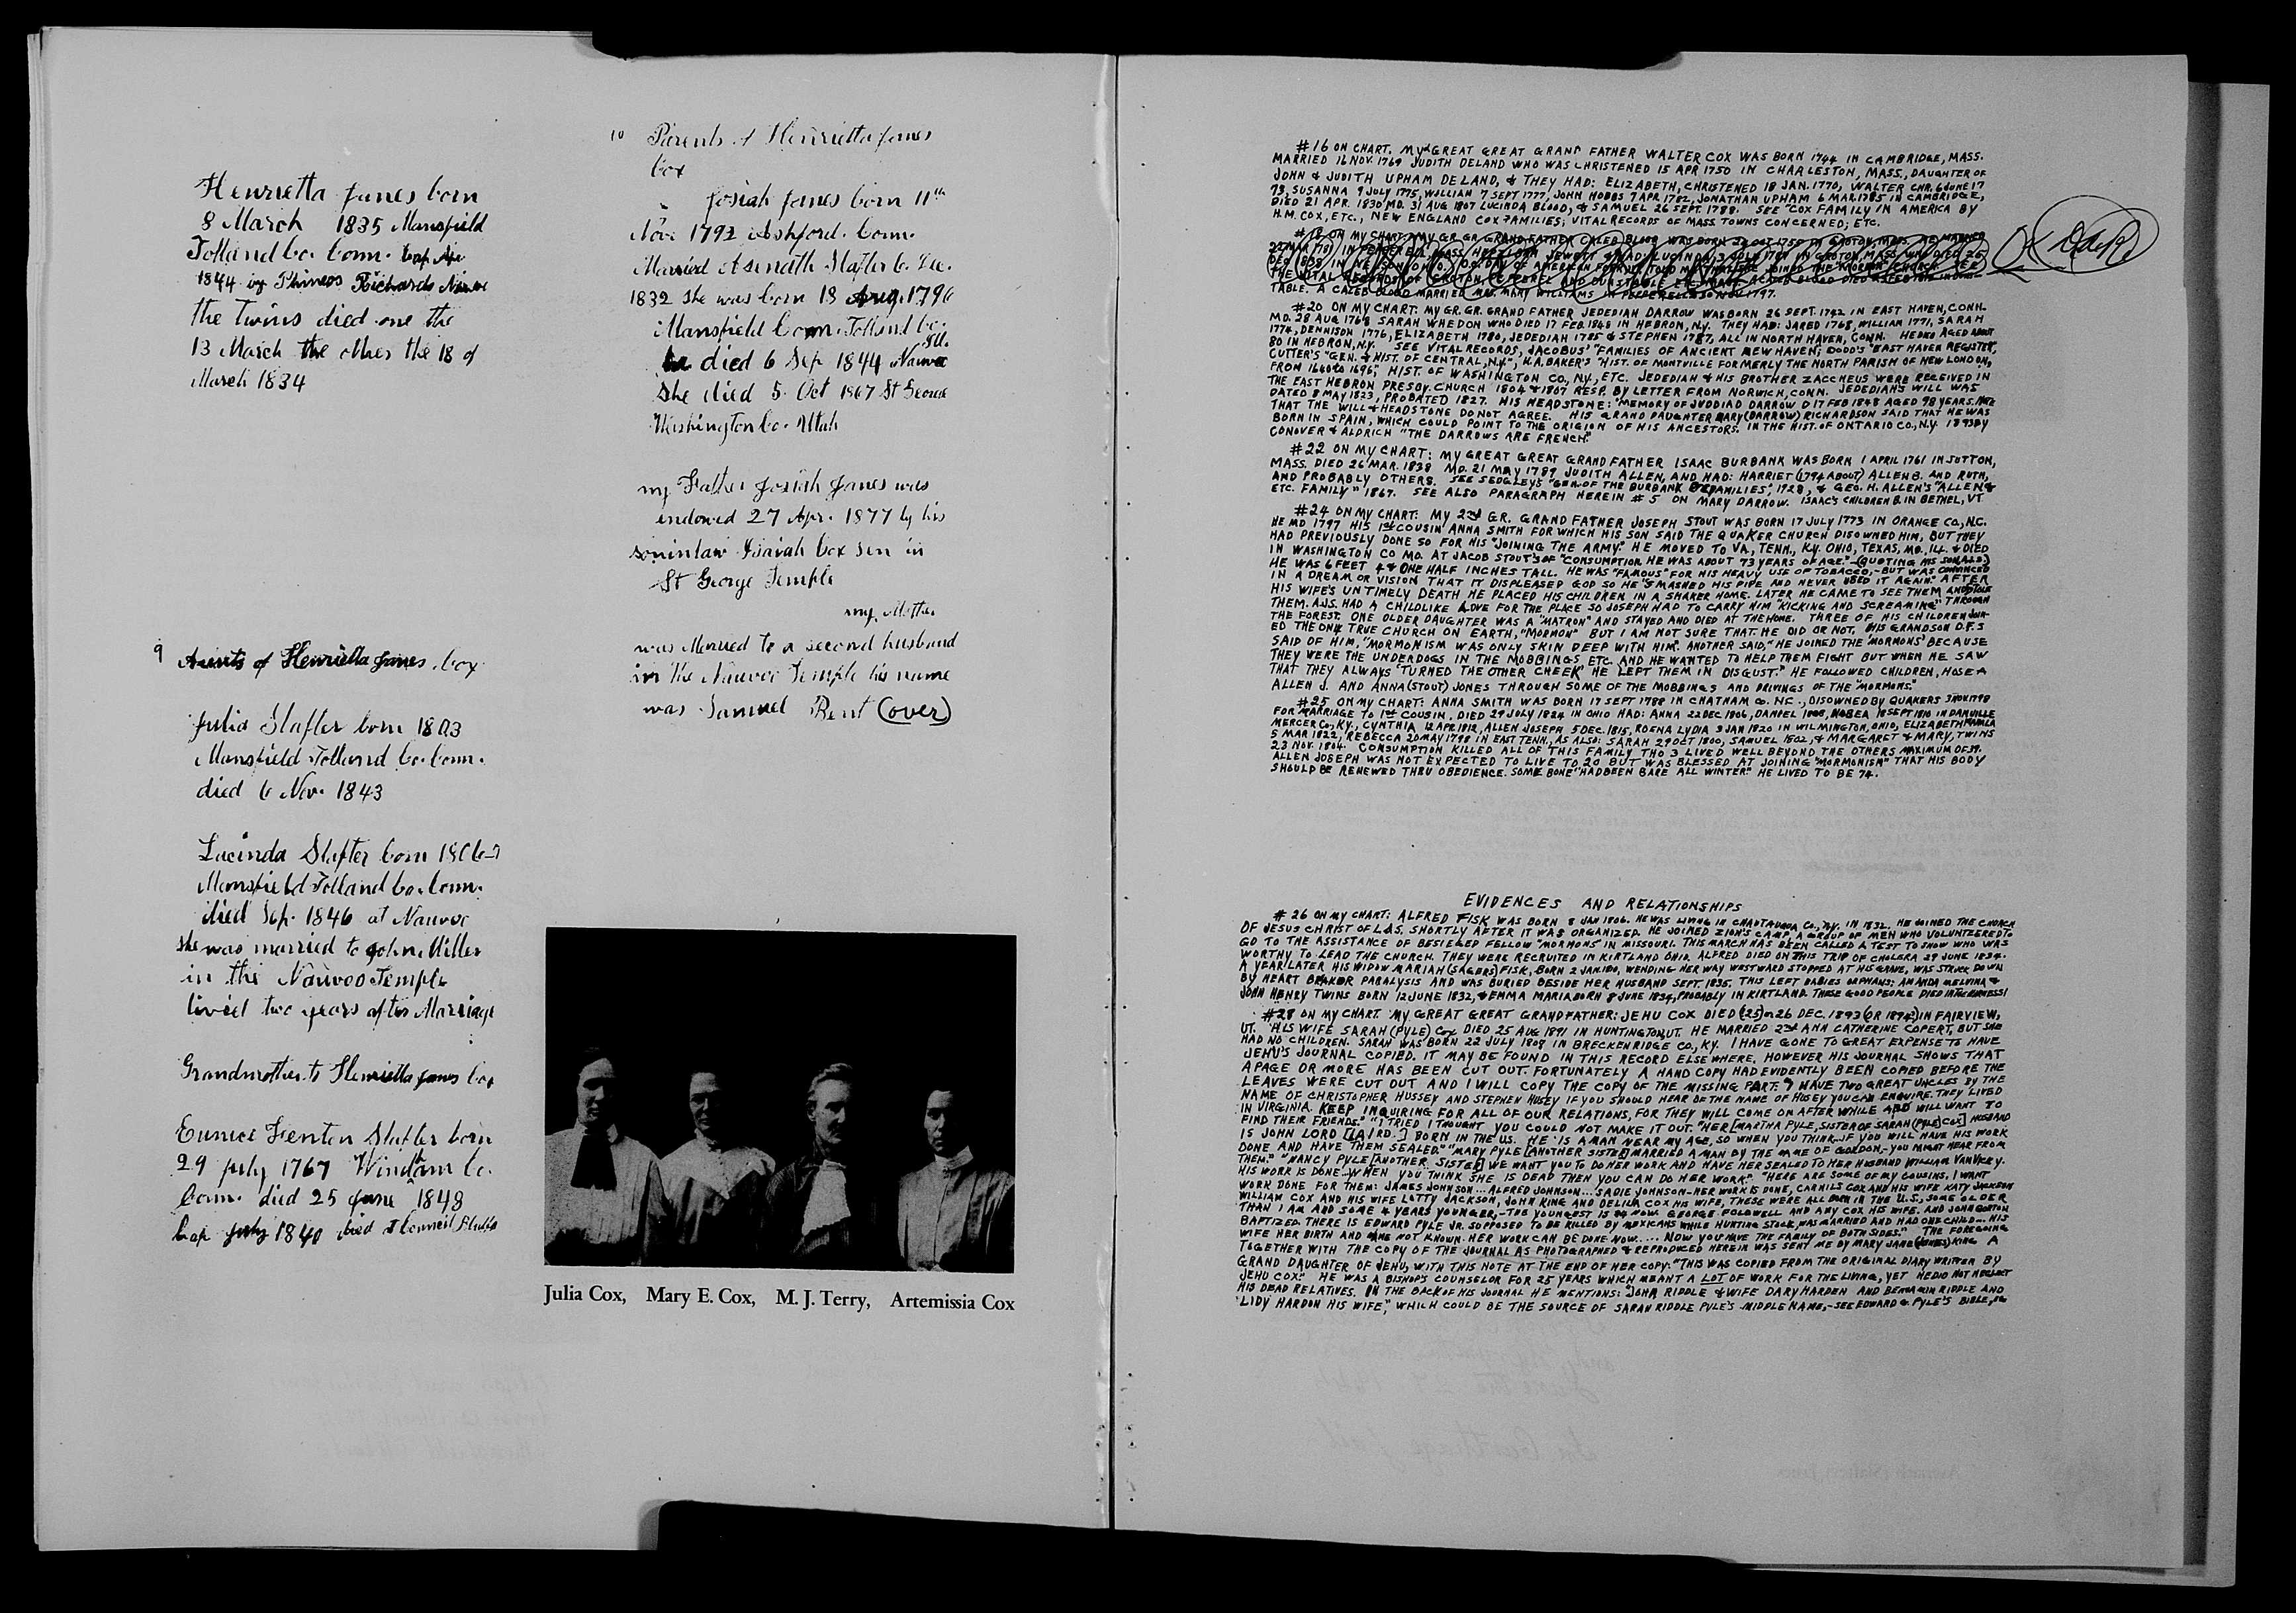 Henrietta Janes born
8 March 1835 Mansfield
Tolland Co. Conn. bap Apr
1844 by Phineas Richards Nauvoo
the twins died one the
13 March the other the 18 of
March 1834
9 Aunts of Henrietta Janes Cox
Julia Slafter born 1803
Mansfield Tolland Co. Conn.
died 6 Nov. 1843
Lucinda Slafter born 1806-7
Mansfield Tolland Co. Conn.
died Sep. 1846 at Nauvoo
she was married to John Miller
in the Nauvoo Temple
lived two years after Marriage
Grandmother to Henrietta Janes Cox
Eunice Fenton Slafter born
29 July 1767 Windham Co.
Conn. died 25 June 1848
bap July 1840 died at Council Bluffs
10 Parents of Henrietta Janes
Cox
Josiah Janes born 11th
Nov 1792 Ashford. Conn.
Married Asenath Slafter 6. Dec.
1832 she was born 13 Aug. 1796
Mansfield Conn. Tolland Co.
he died 6 Sep 1844 Nauvoo Ill.
She died 5. Oct 1867 St George
Washington Co. Utah
my Father Josiah Janes was
endowed 27 Apr. 1877 by his
soninlaw Isaiah Cox sen in
St George Temple
my Mother
was Married to a second husband
in the Nauvoo Temple his name
was Samuel Bent (over)
Julia Cox, Mary E. Cox, M. J. Terry, Artemissia Cox
#16 ON CHART. MY GREAT GREAT GRAND FATHER WALTER COX WAS BORN 1744 IN CAMBRIDGE, MASS.
MARRIED 16 NOV. 1769 JUDITH DELAND WHO WAS CHRISTENED 15 APR 1750 IN CHARLESTON, MASS., DAUGHTER OF
JOHN & JUDITH UPHAM DELAND, & THEY HAD: ELIZABETH, CHRISTENED 18 JAN. 1770, WALTER CHR. 6 JUNE 17
73, SUSANNA 9 JULY 1775, WILLIAN 7 SEPT 1777, JOHN HOBBS 7 APR. 1782, JONATHAN UPHAM 6 MAR. 1785 IN CAMBRIDGE,
DIED 21 APR. 1830 MD. 31 AUG 1807 LUCINDA BLOOD, & SAMUEL 26 SEPT. 1788. SEE "COX FAMILY IN AMERICA BY
H.M. COX, ETC., NEW ENGLAND COX FAMILIES; VITAL RECORDS OF MASS. TOWNS CONCERNED; ETC.
#18 ON MY CHART: MY GR. GR. GRAND FATHER CALEB BLOOD WAS BORN OCT 1750 IN GROTON, MASS. HE MARRIED
TABLE. A CALEB BLOOD MARRIED MRS. MARY WILLIAMS IN PEPPERELL 30 NOV 1797.
#20 ON MY CHART: MY GR. GR. GRAND FATHER JEDEDIAH DARROW WAS BORN 26 SEPT. 1742 IN EAST HAVEN, CONN.
MD. 28 AUG 1768 SARAH WHEDON WHO DIED 17 FEB. 1848 IN HEBRON, N.Y. THEY HAD: JARED 1768, WILLIAN 1771, SARAH
1774, DENNISON 1776, ELIZABETH 1780, JEDEDIAH 1785 & STEPHEN 1787, ALL IN NORTH HAVEN, CONN. HE DIED AGED ABOUT
80 IN HEBRON, N.Y. SEE VITAL RECORDS, JACOBUS' "FAMILIES OF ANCIENT NEW HAVEN; DODD'S "EAST HAVEN REGISTER,
CUTTER'S "GEN. & HIST. OF CENTRAL, N.Y."; H.A. BAKER'S "HIST. OF MONTVILLE FORMERLY THE NORTH PARISH OF NEW LONDON,
FROM 1640 to 1696; HIST. OF WASHINGTON CO., N.Y., ETC. JEDEDIAH & HIS BROTHER ZACCHEUS WERE RECEIVED IN
THE EAST HEBRON PRESBY. CHURCH 1804 & 1807 RESP. BY LETTER FROM NORWICH, CONN. JEDEDIAH'S WILL WAS
DATED 8 MAY 1823, PROBATED 1827. HIS HEADSTONE: "MEMORY OF JUDDIAD DARROW D 17 FEB 1848 AGED 98 YEARS. NOTE
THAT THE WILL & HEADSTONE DO NOT AGREE. HIS GRAND DAUGHTER MARY (DARROW) RICHARDSON SAID THAT HE WAS
BORN IN SPAIN, WHICH COULD POINT TO THE ORIGION OF HIS ANCESTORS. IN THE HIST. OF ONTARIO CO., N.Y. 1893 BY
CONOVER & ALDRICH "THE DARROWS ARE FRENCH".
#22 ON MY CHART: MY GREAT GREAT GRAND FATHER ISAAC BURBANK WAS BORN 1 APRIL 1761 IN SUTTON,
MASS. DIED 26 MAR. 1838 MD. 21 MAY 1789 JUDITH ALLEN, AND HAD: HARRIET (1794 ABOUT) ALLEN B. AND RUTH,
AND PROBABLY OTHERS. SEE SEDGLEY'S "GEN. OF THE BURBANK FAMILIES", 1928, & GEO. H. ALLEN'S "ALLEN &
ETC. FAMILY" 1867. SEE ALSO PARAGRAPH HEREIN #5 ON MARY DARROW. ISAAC'S CHILDREN B. IN BETHEL, VT
#24 ON MY CHART: MY 2nd GR. GRAND FATHER JOSEPH STOUT WAS BORN 17 JULY 1773 IN ORANGE CO., N.C.
HE MD 1797 HIS 1st COUSIN ANNA SMITH FOR WHICH HIS SON SAID THE QUAKER CHURCH DISOWNED HIM, BUT THEY
HAD PREVIOUSLY DONE SO FOR HIS "JOINING THE ARMY." HE MOVED TO VA., TENN., KY. OHIO, TEXAS, MO., ILL. & DIED
IN WASHINGTON CO MO. AT JACOB STOUT'S OF "CONSUMPTION. HE WAS ABOUT 73 YEARS OF AGE."-(QUOTING HIS SON A.J.S.)
HE WAS 6 FEET 4 & ONE HALF INCHES TALL. HE WAS "FAMOUS" FOR HIS HEAVY USE OF TOBACCO,-BUT WAS CONVINCED
IN A DREAM OR VISION THAT IT DISPLEASED GOD SO HE "SMASHED HIS PIPE AND NEVER USED IT AGAIN." AFTER
HIS WIFE'S UNTIMELY DEATH HE PLACED HIS CHILDREN IN A SHAKER HOME. LATER HE CAME TO SEE THEM AND STOLE
THEM. A.J.S. HAD A CHILDLIKE LOVE FOR THE PLACE SO JOSEPH HAD TO CARRY HIM "KICKING AND SCREAMING" THROUGH
THE FOREST. ONE OLDER DAUGHTER WAS A "MATRON" AND STAYED AND DIED AT THE HOME. THREE OF HIS CHILDREN JOIN-
ED THE ONE TRUE CHURCH ON EARTH, "MORMON" BUT I AM NOT SURE THAT HE DID OR NOT. HIS GRANDSON D.F.S
SAID OF HIM, "MORMONISM WAS ONLY SKIN DEEP WITH HIM". ANOTHER SAID, "HE JOINED THE 'MORMONS' BECAUSE
THEY WERE THE UNDERDOGS IN THE MOBBINGS, ETC. AND HE WANTED TO HELP THEM FIGHT BUT WHEN HE SAW
THAT THEY ALWAYS 'TURNED THE OTHER CHEEK' HE LEFT THEM IN DISGUST." HE FOLLOWED CHILDREN, HOSEA
ALLEN J. AND ANNA (STOUT) JONES THROUGH SOME OF THE MOBBINGS AND DRIVINGS OF THE "MORMONS."
#25 ON MY CHART: ANNA SMITH WAS BORN 17 SEPT 1788 IN CHATHAM CO. NC., DISOWNED BY QUAKERS 3 NOV 1798
FOR MARRIAGE TO 1st COUSIN. DIED 29 JULY 1824 IN OHIO HAD: ANNA 22 DEC 1806, DANIEL 1808, HOSEA 18 SEPT 1810 IN DANVILLE
MERCER CO., KY., CYNTHIA 12 APR. 1812, ALLEN JOSEPH 5 DEC. 1815, ROENA LYDIA 3 JAN 1820 IN WILMINGTON, OHIO, ELIZABETH
5 MAR 1822, REBECCA 20 MAY 1798 IN EAST TENN., AS ALSO: SARAH 29 OCT 1800, SAMUEL 1802, & MARGARET & MARY, TWINS
23 NOV. 1804. CONSUMPTION KILLED ALL OF THIS FAMILY THO 3 LIVED WELL BEYOND THE OTHERS MAXIMUM OF 39.
ALLEN JOSEPH WAS NOT EXPECTED TO LIVE TO 20 BUT WAS BLESSED AT JOINING "MORMONISM" THAT HIS BODY
SHOULD BE RENEWED THRU OBEDIENCE. SOME BONE "HAD BEEN BARE ALL WINTER." HE LIVED TO BE 74.
EVIDENCES AND RELATIONSHIPS
#26 ON MY CHART: ALFRED FISK WAS BORN 8 JAN 1806. HE WAS LIVING IN CHAUTAUQUA CO., N.Y. IN 1832. HE JOINED THE CHURCH
OF JESUS CHRIST OF L.D.S. SHORTLY AFTER IT WAS ORGANIZED. HE JOINED ZION'S CAMP, A GROUP OF MEN WHO VOLUNTEERED TO
GO TO THE ASSISTANCE OF BESIEGED FELLOW "MORMONS" IN MISSOURI. THIS MARCH HAS BEEN CALLED A TEST TO SHOW WHO WAS
WORTHY TO LEAD THE CHURCH. THEY WERE RECRUITED IN KIRTLAND OHIO. ALFRED DIED ON THIS TRIP OF CHOLERA 29 JUNE 1834.
A YEAR LATER HIS WIDOW MARIAH (SAGERS) FISK, BORN 2 JAN. WENDING HER WAY WESTWARD STOPPED AT HIS GRAVE, WAS STRUCK DOWN
BY HEART PARALYSIS AND WAS BURIED BESIDE HER HUSBAND SEPT. 1835. THIS LEFT BABIES ORPHANS: AMANDA MELVINA &
JOHN HENRY TWINS BORN 12 JUNE 1832, & EMMA MARIA BORN 8 JUNE 1834, PROBABLY IN KIRTLAND. THESE GOOD PEOPLE DIED IN THE HARNESS!
#28 ON MY CHART. MY GREAT GREAT GRANDFATHER: JEHU COX DIED (25) or 26 DEC. 1893 (OR 1894) IN FAIRVIEW,
UT. HIS WIFE SARAH (PYLE) COX DIED 25 AUG 1891 IN HUNTINGTON, UT. HE MARRIED 2nd ANN CATHERINE COPERT, BUT SHE
HAD NO CHILDREN. SARAH WAS BORN 22 JULY 1808 IN BRECKENRIDGE CO., KY. I HAVE GONE TO GREAT EXPENSE TO HAVE
JEHU'S JOURNAL COPIED. IT MAY BE FOUND IN THIS RECORD ELSEWHERE. HOWEVER HIS JOURNAL SHOWS THAT
A PAGE OR MORE HAS BEEN CUT OUT. FORTUNATELY A HAND COPY HAD EVIDENTLY BEEN COPIED BEFORE THE
LEAVES WERE CUT OUT AND I WILL COPY THE COPY OF THE MISSING PART. "I HAVE TWO GREAT UNCLES BY THE
NAME OF CHRISTOPHER HUSSEY AND STEPHEN HUSEY IF YOU SHOULD HEAR OF THE NAME OF HUSEY YOU CAN ENQUIRE. THEY LIVED
IN VIRGINIA. KEEP INQUIRING FOR ALL OF OUR RELATIONS, FOR THEY WILL COME ON AFTER WHILE AND WILL WANT TO
FIND THEIR FRIENDS." "I TRIED I THOUGHT YOU COULD NOT MAKE IT OUT. "HER [MARTHA PYLE, SISTER OF SARAH (PYLE) COX] HUSBAND
IS JOHN LORD [LAIRD.] BORN IN THE U.S. HE IS A MAN NEAR MY AGE, SO WHEN YOU THINK..IF YOU WILL HAVE HIS WORK
DONE AND HAVE THEM SEALED." "MARY PYLE [ANOTHER SISTER] MARRIED A MAN BY THE NAME OF GORDON,-YOU MIGHT HEAR FROM
THEM." "NANCY PYLE [ANOTHER SISTER] WE WANT YOU TO DO HER WORK AND HAVE HER SEALED TO HER HUSBAND WILLIAM VANVICKY.
HIS WORK IS DONE...WHEN YOU THINK SHE IS DEAD THEN YOU CAN DO HER WORK." "HERE ARE SOME OF MY COUSINS, I WANT
WORK DONE FOR THEM: JAMES JOHNSON...ALFRED JOHNSON...SADIE JOHNSON-HER WORK IS DONE, CARNILS COX AND HIS WIFE KATY JACKSON
WILLIAM COX AND HIS WIFE LOTTY JACKSON, JOHN KING AND DELILA COX HIS WIFE, THESE WERE ALL BORN IN THE U.S., SOME OLDER
THAN I AM AND SOME 4 YEARS YOUNGER,-THE YOUNGEST IS NOW. GEORGE FOLDWELL AND ANY COX HIS WIFE. AND JOHN GORTON
BAPTIZED. THERE IS EDWARD PYLE JR. SUPPOSED TO BE KILLED BY MEXICANS WHILE HUNTING STOCK, WAS MARRIED AND HAD ONE CHILD... HIS
WIFE HER BIRTH AND NOT KNOWN. HER WORK CAN BE DONE NOW..... NOW YOU HAVE THE FAMILY OF BOTH SIDES." THE FOREGOING
TOGETHER WITH THE COPY OF THE JOURNAL AS PHOTOGRAPHED & REPRODUCED HEREIN WAS SENT ME BY MARY JANE (JONES) KING A
GRAND DAUGHTER OF JEHU, WITH THIS NOTE AT THE END OF HER COPY: "THIS WAS COPIED FROM THE ORIGINAL DIARY WRITTEN BY
JEHU COX." HE WAS A BISHOP'S COUNSELOR FOR 25 YEARS WHICH MEANT A LOT OF WORK FOR THE LIVING, YET HE DID NOT NEGLECT
HIS DEAD RELATIVES. IN THE BACK OF HIS JOURNAL HE MENTIONS: "JOHN RIDDLE & WIFE DARY HARDEN AND BENGAIN RIDDLE AND
"LIDY HARDON HIS WIFE," WHICH COULD BE THE SOURCE OF SARAH RIDDLE PYLE'S MIDDLE NAME,-SEE EDWARD G. PYLE'S BIBLE,